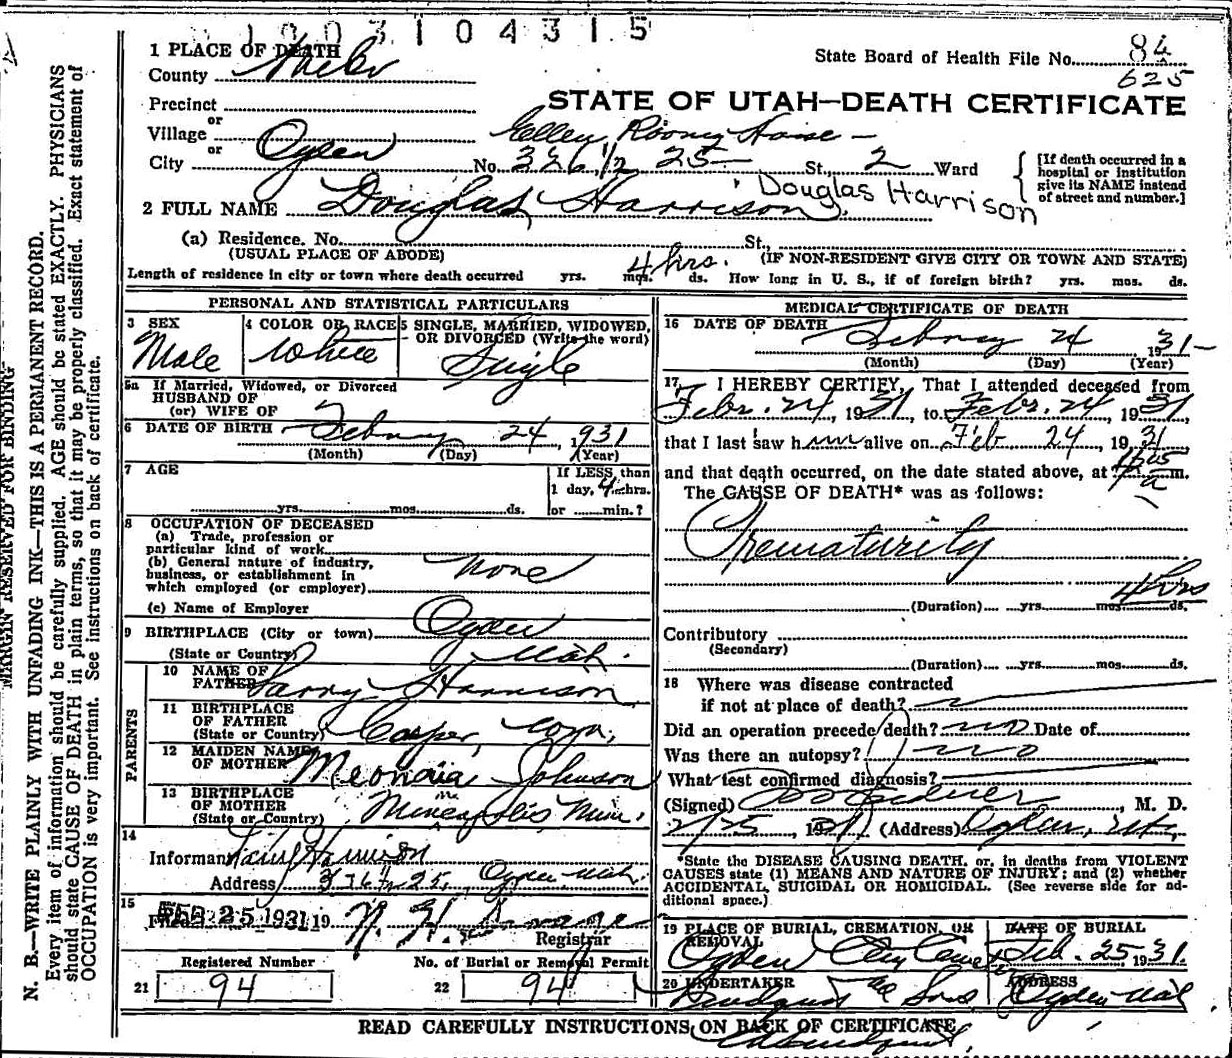 1003104315
1 PLACE OF DEATH
County Weber
State Board of Health File No. 84
625
STATE OF UTAH—DEATH CERTIFICATE
Precinct
or
Village
or
City Ogden No. 326 1/2 25 St., 2 Ward
Rooms
[If death occurred in a hospital or institution give its NAME instead of street and number.]
2 FULL NAME Douglas Harrison Douglas Harrison
(a) Residence. No. St.,
(USUAL PLACE OF ABODE) (IF NON-RESIDENT GIVE CITY OR TOWN AND STATE)
Length of residence in city or town where death occurred yrs. mos. 4 hrs. ds. How long in U. S., if of foreign birth? yrs. mos. ds.
PERSONAL AND STATISTICAL PARTICULARS
3 SEX Male
4 COLOR OR RACE White
5 SINGLE, MARRIED, WIDOWED, OR DIVORCED (Write the word) Single
5a If Married, Widowed, or Divorced
HUSBAND OF
(or) WIFE OF
6 DATE OF BIRTH February 24 1931
(Month) (Day) (Year)
7 AGE
yrs. mos. ds.
If LESS than
1 day, 4 hrs.
or min.?
8 OCCUPATION OF DECEASED
(a) Trade, profession or
particular kind of work
(b) General nature of industry,
business, or establishment in
which employed (or employer) None
(c) Name of Employer
9 BIRTHPLACE (City or town) Ogden
(State or Country) Utah.
PARENTS
10 NAME OF FATHER Larry Harrison
11 BIRTHPLACE OF FATHER (State or Country) Casper, Wyo.
12 MAIDEN NAME OF MOTHER Johnson
13 BIRTHPLACE OF MOTHER (State or Country) Mineapolis, Minn.
14
Informant Harrison
Address 326 1/2 25, Ogden Utah.
15
Filed FEB 25 1931 19
Registrar
Registered Number No. of Burial or Removal Permit
21 94 22 94
MEDICAL CERTIFICATE OF DEATH
16 DATE OF DEATH February 24 1931
(Month) (Day) (Year)
17 I HEREBY CERTIFY, That I attended deceased from
Febr. 24, 1931, to Febr. 24, 1931
that I last saw him alive on Feb 24, 1931
and that death occurred, on the date stated above, at m.
The CAUSE OF DEATH* was as follows:
Prematurity
4 hrs
(Duration) yrs. mos. ds.
Contributory
(Secondary)
(Duration) yrs. mos. ds.
18 Where was disease contracted
if not at place of death?
Did an operation precede death? no Date of
Was there an autopsy? no
What test confirmed diagnosis?
(Signed) , M. D.
2/25, 1931 (Address) Ogden, Ut.
*State the DISEASE CAUSING DEATH, or, in deaths from VIOLENT
CAUSES state (1) MEANS AND NATURE OF INJURY; and (2) whether
ACCIDENTAL, SUICIDAL OR HOMICIDAL. (See reverse side for ad-
ditional space.)
19 PLACE OF BURIAL, CREMATION, OR REMOVAL Ogden City Cemetery
DATE OF BURIAL Feb. 25 1931.
20 UNDERTAKER & Sons
ADDRESS Ogden Utah
READ CAREFULLY INSTRUCTIONS ON BACK OF CERTIFICATE
MARGIN RESERVED FOR BINDING
N. B.—WRITE PLAINLY WITH UNFADING INK—THIS IS A PERMANENT RECORD.
Every item of information should be carefully supplied. AGE should be stated EXACTLY. PHYSICIANS
should state CAUSE OF DEATH in plain terms, so that it may be properly classified. Exact statement of
OCCUPATION is very important. See instructions on back of certificate.